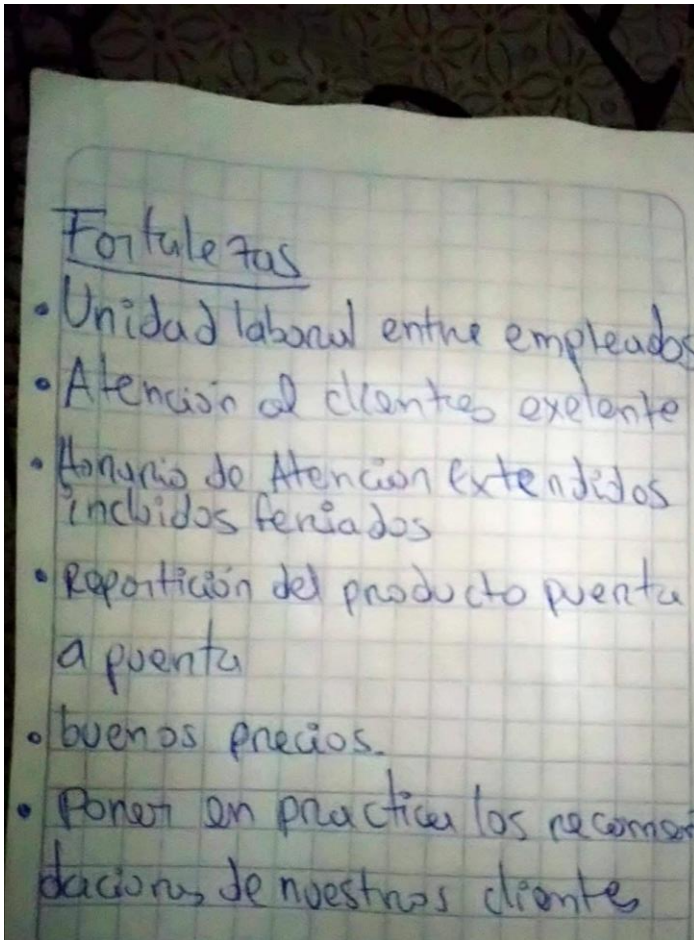 Fortalezas
• Unidad laboral entre empleados
• Atención al clientes exelente
• Horario de Atencion extendidos
incluidos feriados
• Repartición del producto puerta
a puerta
• buenos precios.
• Poner en practica los recomen
daciones de nuestros clientes